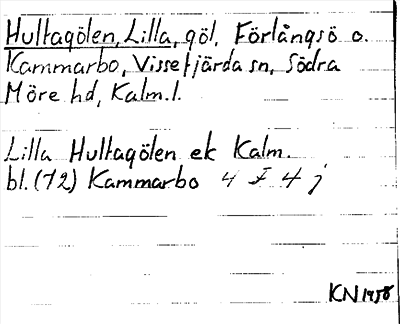 Hultagölen, Lilla, göl, Förlångsö o.
Kammarbo, Vissefjärda sn, Södra
Möre hd, Kalm. l.
Lilla Hultagölen ek Kalm.
bl. (72) Kammarbo 4 I 4 j
KN 1958